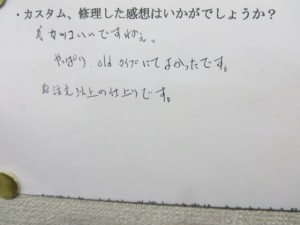 ・カスタム、修理した感想はいかがでしょうか？
カッはいいですねぇ。
やっぱり old タイプにてよかったです。
注文以上の仕上りです。